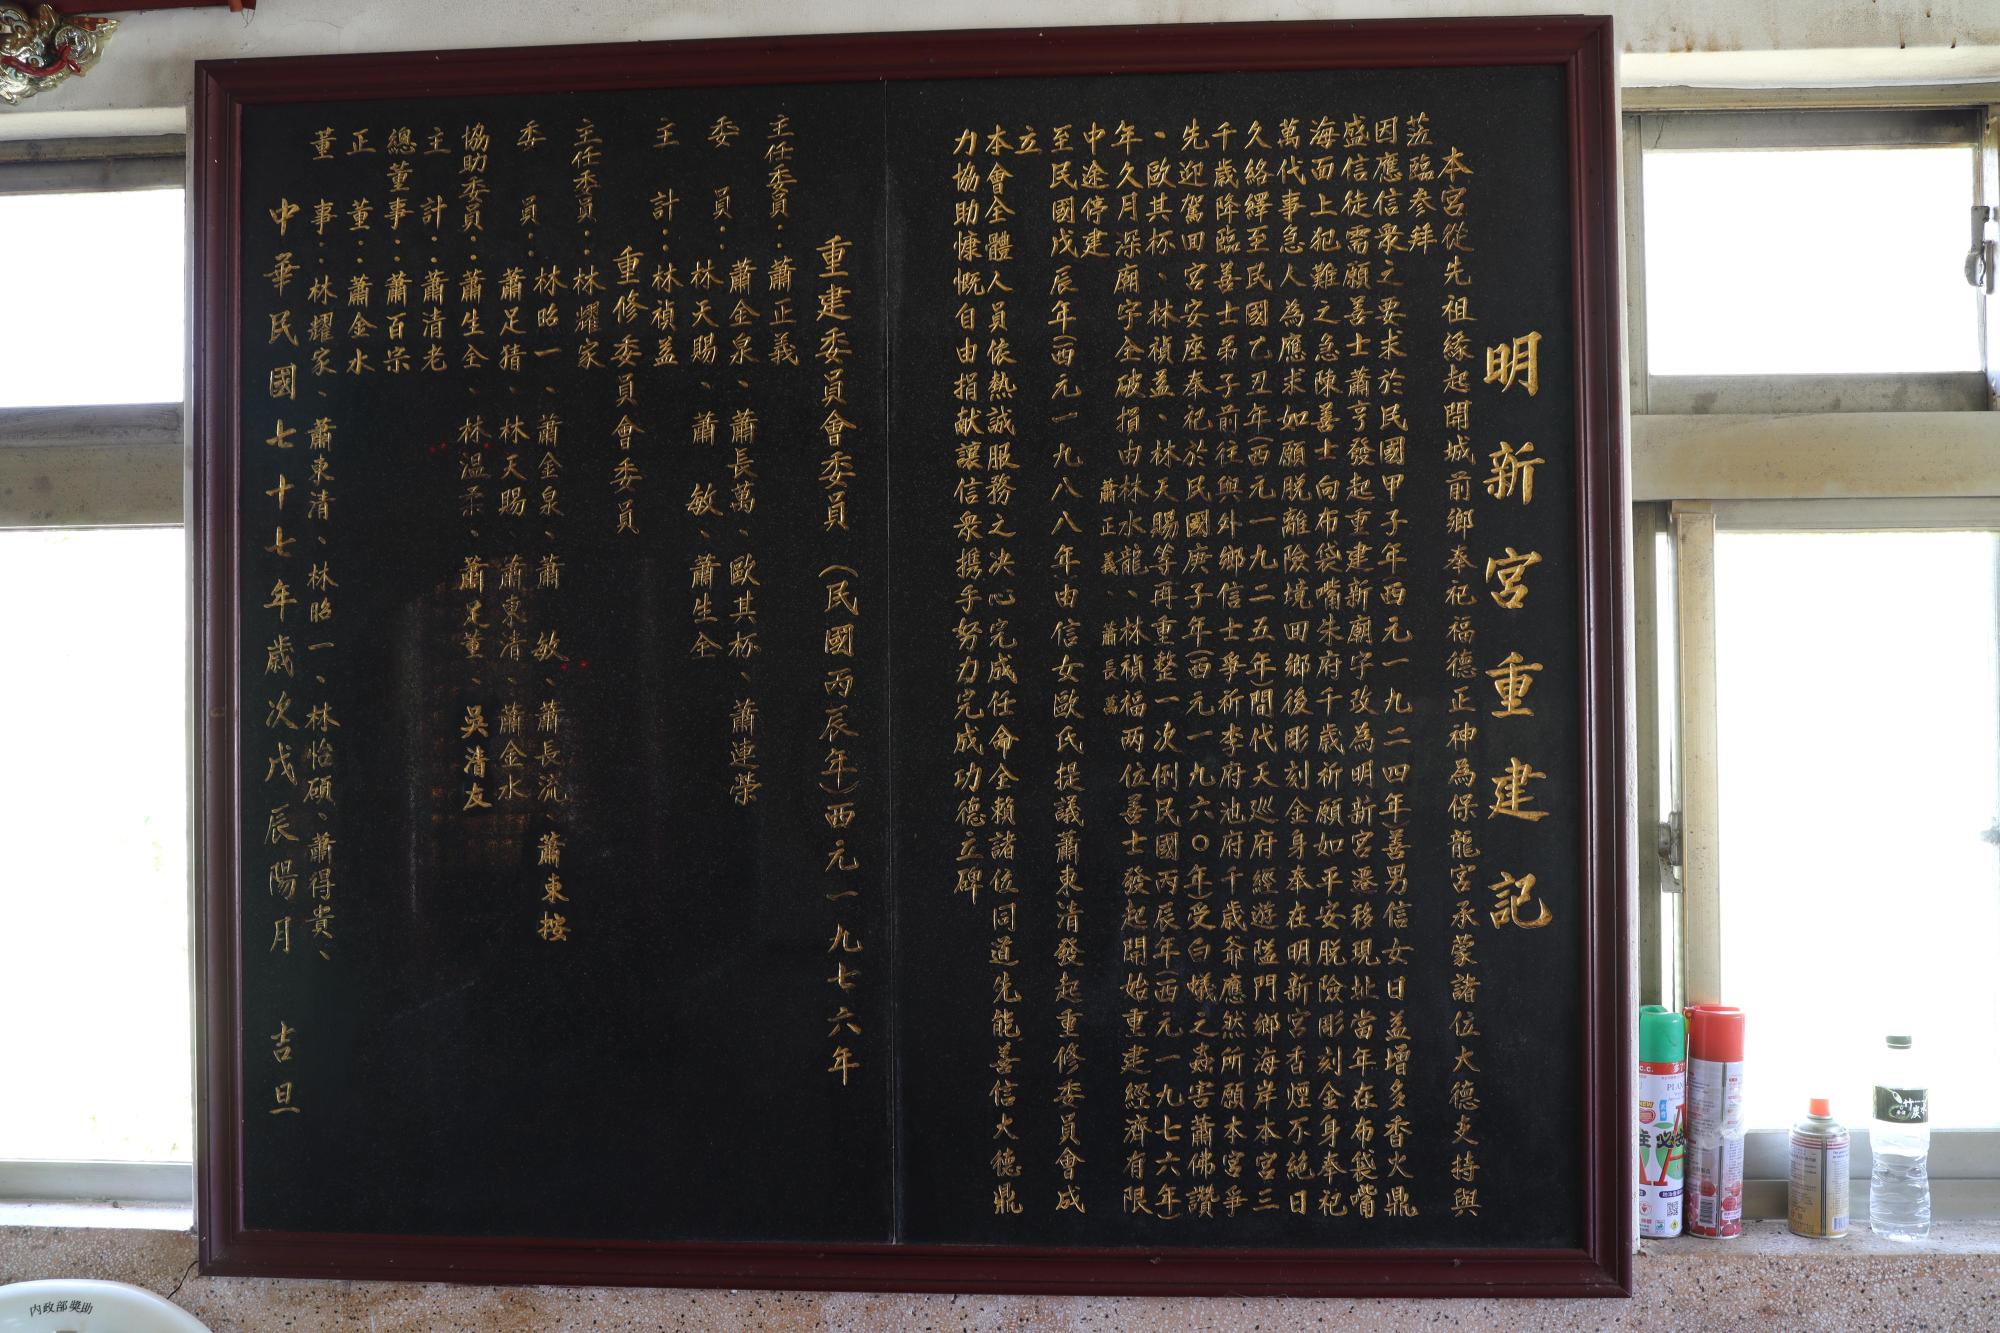 明新宮重建記
本宮從先祖緣起開城前鄉奉祀福德正神為保龍宮承蒙諸位大德支持與
蒞臨參拜
因應信衆之要求於民國甲子年西元一九二四年)善男信女日益增多香火鼎
盛信徒需願善士蕭亨發起重建新廟宇改為明新宮遷移現址當年在布袋嘴
海面上犯難之急陳善士向布袋嘴朱府千歲祈願如平安脫險彫刻金身奉祀
萬代事急人為應求如願脫離險境回鄉後彫刻金身奉在明新宮香煙不絕日
久絡繹至民國乙丑年(西元一九二五年)間代天巡府經遊隘門鄉海岸本宮三
千歲降臨善士弟子前往與外鄉信士爭祈李府池府千歲爺應然所願本宮爭
先迎駕回宮安座奉祀於民國庚子年(西元一九六〇年)受白蟻之蟲害蕭佛讚
、歐其杯、林禎益、林天賜等再重整一次倒民國丙辰年(西元一九七六年)
年久月深廟宇全破損由林水龍、林禎福兩位善士發起開始重建經濟有限
蕭正義、蕭長萬
中途停建
至民國戊辰年(西元一九八八年由信女歐氏提議蕭東清發起重修委員會成
立
本會全體人員依熱誠服務之決心完成任命全賴諸位同道先能善信大德鼎
力協助慷慨自由捐献讓信衆携手努力完成功德立碑
重建委員會委員(民國丙辰年)西元一九七六年
主任委員:蕭正義
委員:蕭金泉、蕭長萬、歐其杯、蕭連榮
林天賜、蕭敏、蕭生全
主計:林禎益
重修委員會委員
主任委員:林耀家
委員:林昭一、蕭金泉、蕭敏、蕭長流、蕭東按
蕭足猜、林天賜、蕭東清、蕭金水
協助委員:蕭生全、林溫柔、蕭足董、吳清友
主計:蕭清老
總董事:蕭百宗
正董:蕭金水
董事:林耀家、蕭東清、林昭一、林怡碩、蕭得貴、
中華民國七十七年歲次戊辰陽月 吉旦
內政部獎助